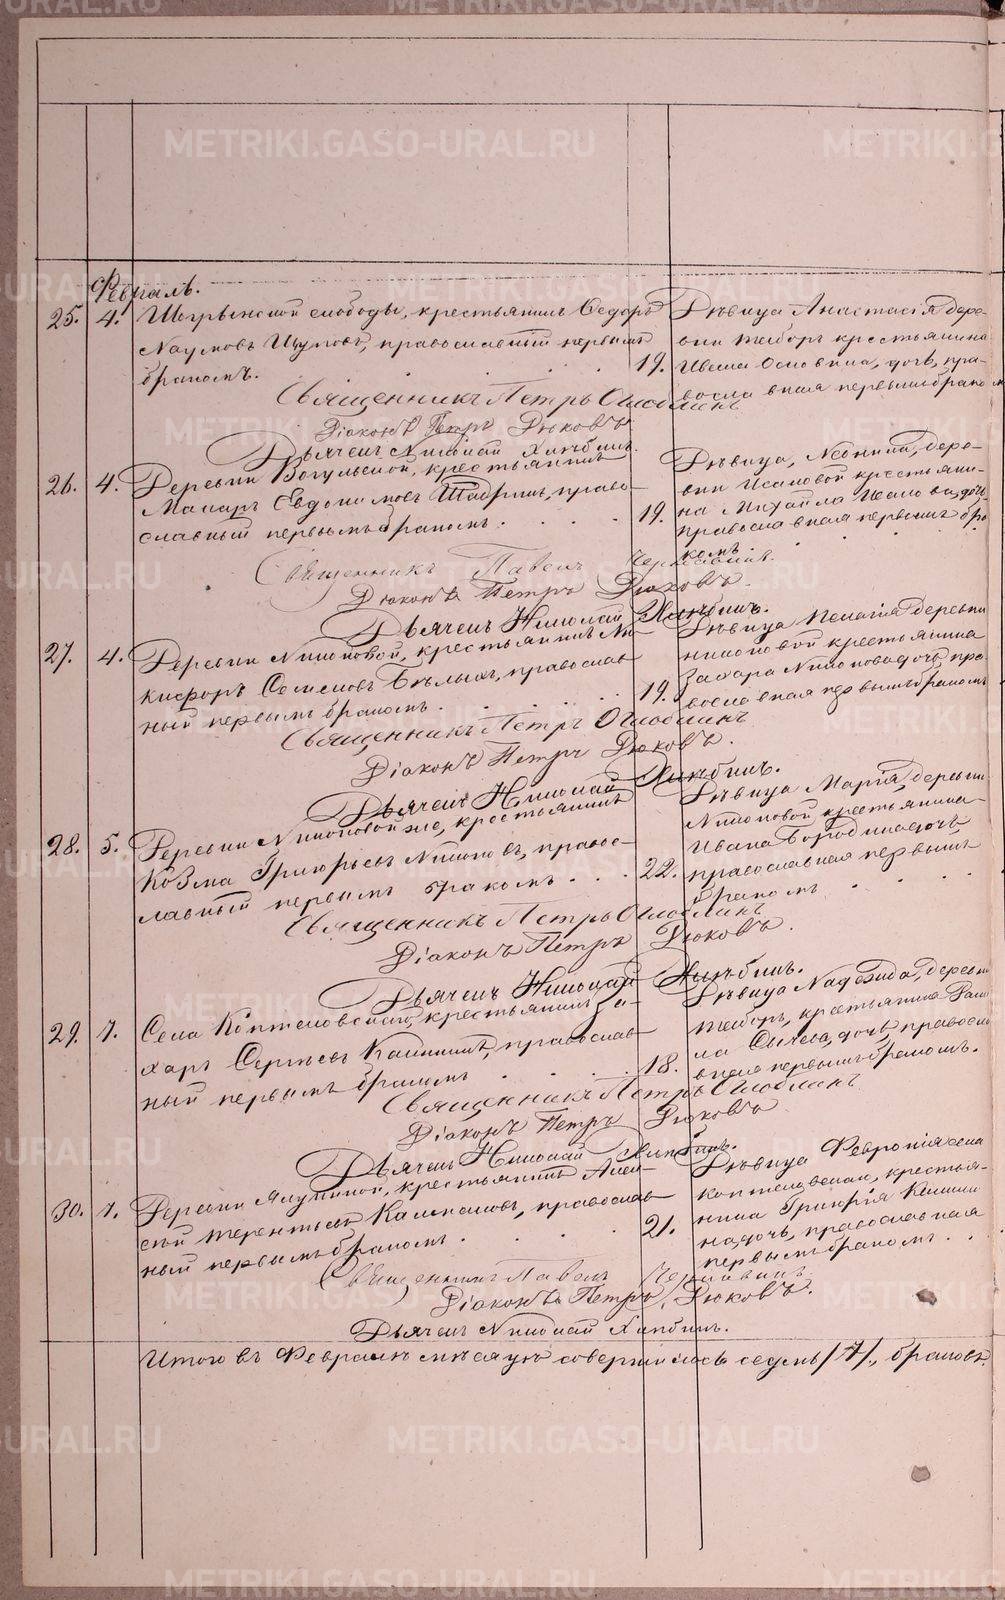 Февраль.
25. 4. слободы, крестьянинъ Ѳедоръ
Наумовъ православный первымъ
бракомъ. 19.
Дѣвица Анастасія дере-
вни крестьянина
дочь, пра-
вославная первымъ браком
Священникъ Петръ
Діаконъ Петръ Дюковъ
Дьячекъ Николай Хлѣбинъ.
26. 4. Деревни Вогульской, крестьянинъ
Макаръ Евдокимовъ право-
славный первымъ бракомъ. 19.
Дѣвица, дере-
вни Исаковой крестьяни-
на Михаила Исакова дочь
православная первымъ бра
комъ.
Священникъ Павелъ
Діаконъ Петръ Дюковъ.
Дьячекъ Николай Хлѣбинъ.
27. 4. Деревни Никоновой, крестьянинъ Ни-
кифоръ Семеновъ Бѣлыхъ, православ-
ный первымъ бракомъ. 19.
Дѣвица Пелагія деревни
Никоновой крестьянина
Захара Никонова дочь пра-
вославная первымъ бракомъ
Священникъ Петръ
Діаконъ Петръ Дюковъ.
Дьячекъ Николай Хлѣбинъ.
28. 5. Деревни Никоновой же, крестьянинъ
Козма Григорьевъ Никоновъ, право-
славный первымъ бракомъ. 22.
Дѣвица Марія, деревни
Никоновой крестьянина
Ивана Бородина дочь
православная первымъ
бракомъ
Священникъ Петръ
Діаконъ Петръ Дюковъ.
Дьячекъ Николай Хлѣбинъ.
29. 7. Села Коптеловскаго, крестьянинъ За-
харъ Сергѣевъ православ-
ный первымъ бракомъ 18.
Дѣвица Надежда, деревни
крестьянина
дочь, правосла
вная первымъ бракомъ.
Священникъ Петръ
Діаконъ Петръ Дюковъ
Дьячекъ Николай Хлѣбинъ.
30. 7. Деревни Ялуниной, крестьянинъ Алек-
сѣй Терентьевъ православ-
ный первымъ бракомъ 21.
Дѣвица Февронія села
Коптеловскаго, крестья-
нина Григорія
на дочь, православная
первымъ бракомъ.
Священникъ Павелъ
Діаконъ Петръ Дюковъ.
Дьячекъ Николай Хлѣбинъ.
Итого въ Февралѣ мѣсяцѣ совершилось седмь /7/, браковъ.
METRIKI.GASO-URAL.RU